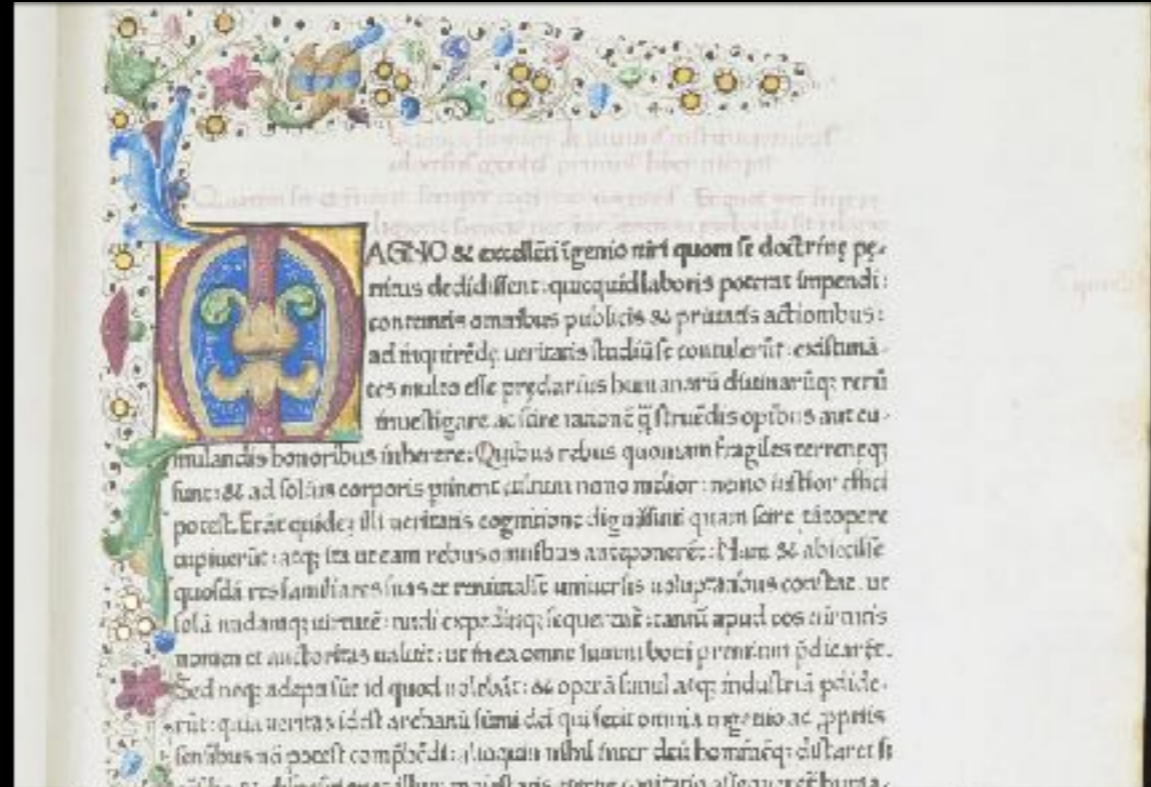 MAGNO & excellēti īgenio uiri quom se doctrinę pę-
nitus dedidissent: quicquid laboris poterat impendi:
contemtis omnibus publicis & priuatis actionibus:
ad inquirēdę ueritatis studiū se contulerūt: existimā-
tes multo esse pręclarius humanarū diuinarūq; rerū
inuestigare ac scire rationē q̄ struēdis opibus aut cu-
mulandis honoribus inherere: Quibus rebus quoniam fragiles terreneq;
sunt: & ad solius corporis ptinent cultum nemo melior: nemo iustior effici
potest. Erāt quidez illi ueritatis cognitione dignissimi quam scire tātopere
cupiuerūt: atq; ita ut eam rebus omnibus anteponerēt: Nam & abiecisse
quosdā res familiares suas et renuntiasse uniuersis uoluptatibus constat. ut
solā nudamq; uirtutē: nudi expeditiq; sequerētur: tantū apud eos uirtutis
nomen et auctoritas ualuit: ut in ea omne summi boni premium p̄dicarēt.
Sed neq; adepti sūt id quod uolebāt: & operā simul atq; industriā pdide-
rūt: quia ueritas id est archanū sūmi dei qui fecit omnia ingenio ac ꝓpriis
sensibus nō potest comp̄hēdi: alioquin nihil inter deū hominēq; distaret si